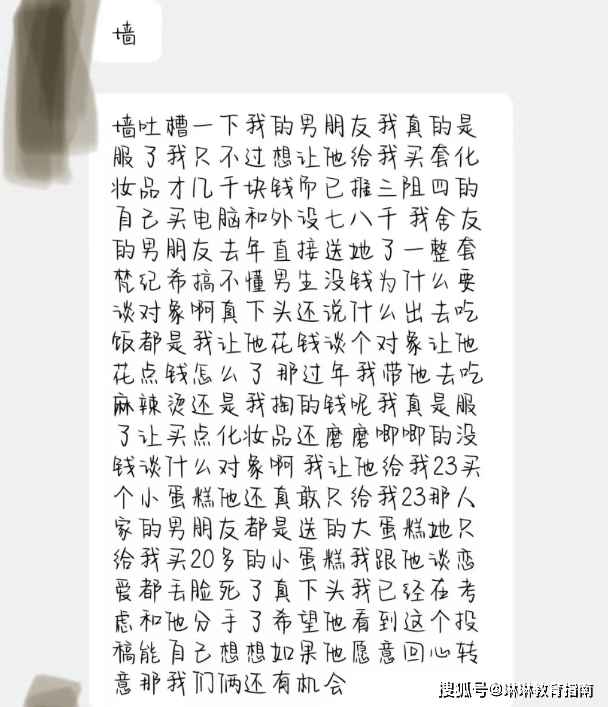 墙
墙吐槽一下我的男朋友我真的是
服了我只不过想让他给我买套化
妆品才几千块钱而已推三阻四的
自己买电脑和外设七八千 我舍友
的男朋友去年直接送她了一整套
梵纪希搞不懂男生没钱为什么要
谈对象啊真下头还说什么出去吃
饭都是我让他花钱谈个对象让他
花点钱怎么了 那过年我带他去吃
麻辣烫还是我掏的钱呢我真是服
了让买点化妆品还磨磨唧唧的没
钱谈什么对象啊 我让他给我23买
个小蛋糕他还真敢只给我23那人
家的男朋友都是送的大蛋糕她只
给我买20多的小蛋糕我跟他谈恋
爱都丢脸死了真下头我已经在考
虑和他分手了希望他看到这个投
稿能自己想想如果他愿意回心转
意那我们俩还有机会
搜狐号@琳琳教育指南